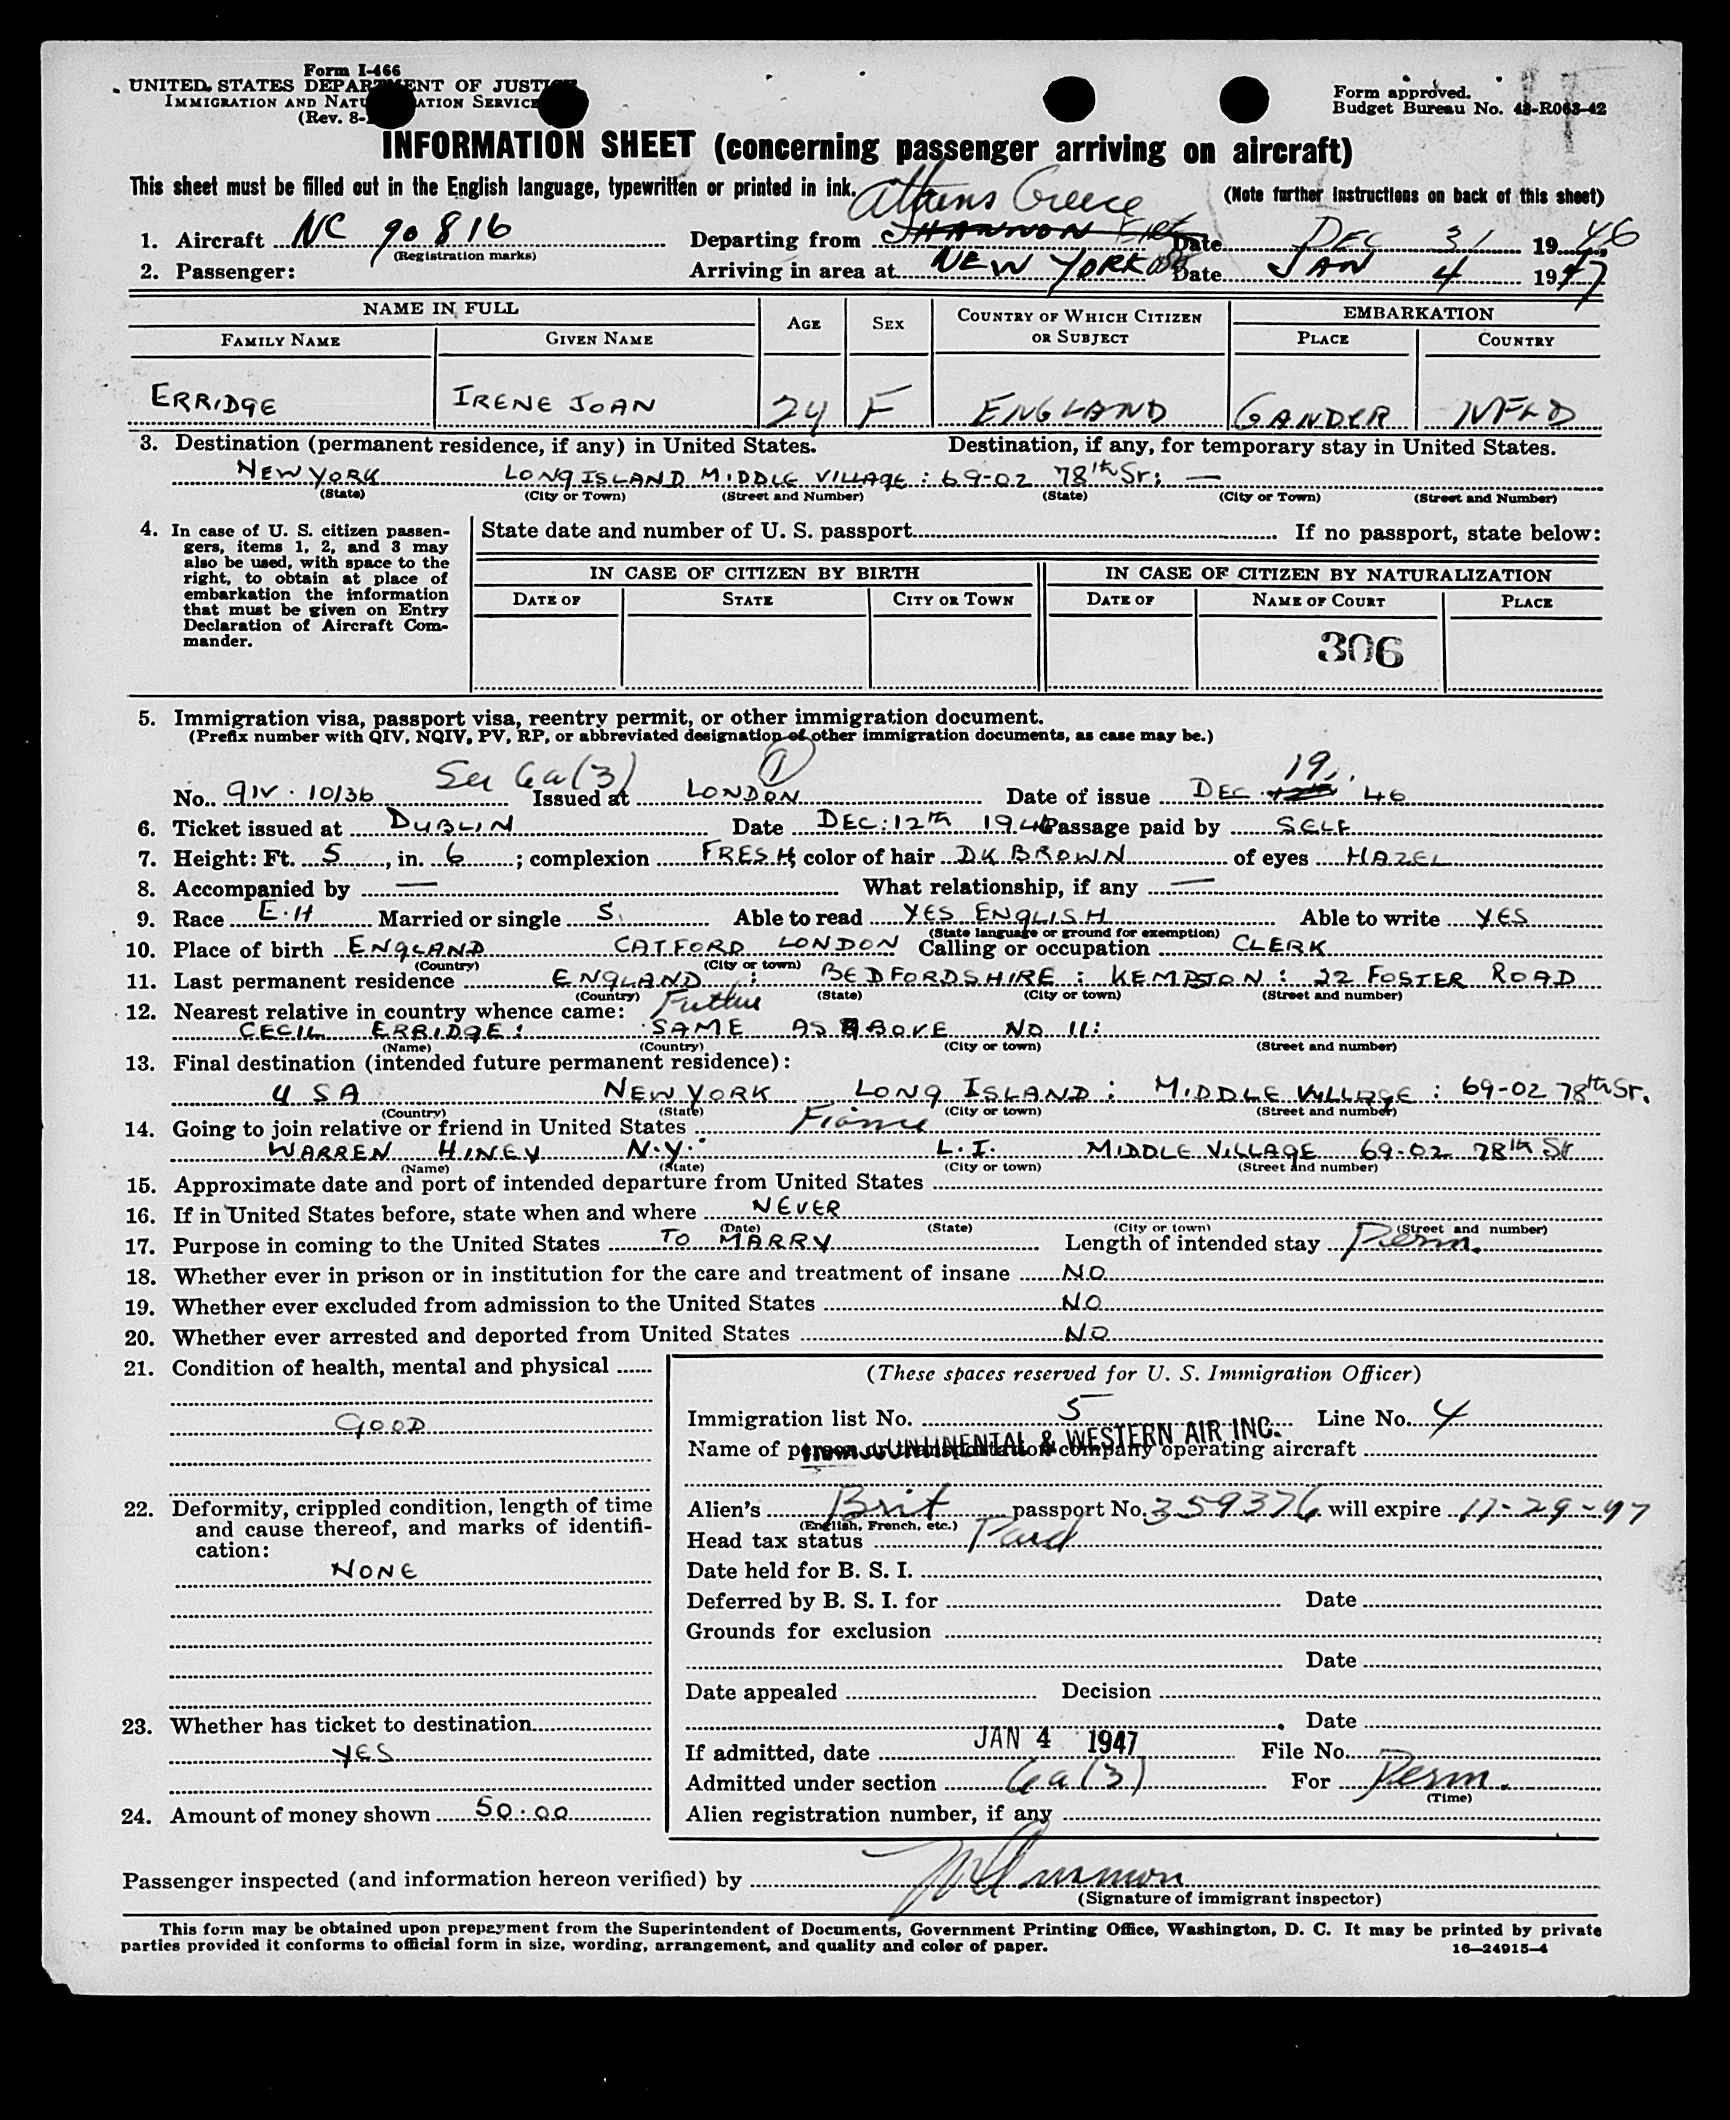 Form I-466
UNITED STATES DEPARTMENT OF JUSTICE
IMMIGRATION AND NATURALIZATION SERVICE
(Rev. 8-
Form approved.
Budget Bureau No. 43-R063-42
INFORMATION SHEET (concerning passenger arriving on aircraft)
This sheet must be filled out in the English language, typewritten or printed in ink.
(Note further instructions on back of this sheet)
Athens Greece
1. Aircraft NC 90816 Departing from SHANNON EIRE Date DEC 31 1946
(Registration marks)
2. Passenger: Arriving in area at NEW YORK Date JAN 4 1947
NAME IN FULL AGE SEX COUNTRY OF WHICH CITIZEN OR SUBJECT EMBARKATION
FAMILY NAME GIVEN NAME PLACE COUNTRY
ERRIDGE IRENE JOAN 24 F ENGLAND GANDER NFLD
3. Destination (permanent residence, if any) in United States. Destination, if any, for temporary stay in United States.
NEW YORK LONG ISLAND MIDDLE VILLAGE : 69-02 78th ST: —
(State) (City or Town) (Street and Number) (State) (City or Town) (Street and Number)
4. In case of U. S. citizen passen-
gers, items 1, 2, and 3 may
also be used, with space to the
right, to obtain at place of
embarkation the information
that must be given on Entry
Declaration of Aircraft Com-
mander.
State date and number of U. S. passport If no passport, state below:
IN CASE OF CITIZEN BY BIRTH IN CASE OF CITIZEN BY NATURALIZATION
DATE OF STATE CITY OR TOWN DATE OF NAME OF COURT PLACE
306
5. Immigration visa, passport visa, reentry permit, or other immigration document.
(Prefix number with QIV, NQIV, PV, RP, or abbreviated designation of other immigration documents, as case may be.)
See 6a(3) 1 19
No. QIV. 10136 Issued at LONDON Date of issue DEC 46
6. Ticket issued at DUBLIN Date DEC: 12th 1946 Passage paid by SELF
7. Height: Ft. 5, in. 6; complexion FRESH; color of hair DK BROWN of eyes HAZEL
8. Accompanied by — What relationship, if any —
9. Race E.H Married or single S. Able to read YES ENGLISH Able to write YES
(State language or ground for exemption)
10. Place of birth ENGLAND CATFORD LONDON Calling or occupation CLERK
(Country) (City or town)
11. Last permanent residence ENGLAND : BEDFORDSHIRE : KEMPSTON : 22 FOSTER ROAD
(Country) (State) (City or town) (Street and number)
12. Nearest relative in country whence came: Father
CECIL ERRIDGE: SAME AS ABOVE NO 11:
(Name) (Country) (City or town) (Street and number)
13. Final destination (intended future permanent residence):
USA NEW YORK LONG ISLAND : MIDDLE VILLAGE : 69-02 78th ST.
(Country) (State) (City or town) (Street and number)
14. Going to join relative or friend in United States Fiance
WARREN HINEY N.Y. L.I. MIDDLE VILLAGE 69-02 78th St
(Name) (State) (City or town) (Street and number)
15. Approximate date and port of intended departure from United States
16. If in United States before, state when and where NEVER
(Date) (State) (City or town) (Street and number)
17. Purpose in coming to the United States TO MARRY Length of intended stay Perm.
18. Whether ever in prison or in institution for the care and treatment of insane NO
19. Whether ever excluded from admission to the United States NO
20. Whether ever arrested and deported from United States NO
21. Condition of health, mental and physical
GOOD
22. Deformity, crippled condition, length of time
and cause thereof, and marks of identifi-
cation:
NONE
23. Whether has ticket to destination
YES
24. Amount of money shown 50.00
(These spaces reserved for U. S. Immigration Officer)
Immigration list No. 5 Line No. 4
CONTINENTAL & WESTERN AIR INC.
Name of person or transportation company operating aircraft
Alien's Brit passport No. 359376 will expire 11-29-47
(English, French, etc.)
Head tax status Paid
Date held for B. S. I.
Deferred by B. S. I. for Date
Grounds for exclusion
Date
Date appealed Decision
Date
If admitted, date JAN 4 1947 File No.
Admitted under section 6a(3) For Perm.
(Time)
Alien registration number, if any
Passenger inspected (and information hereon verified) by
(Signature of immigrant inspector)
This form may be obtained upon prepayment from the Superintendent of Documents, Government Printing Office, Washington, D. C. It may be printed by private
parties provided it conforms to official form in size, wording, arrangement, and quality and color of paper.
16—24915-4